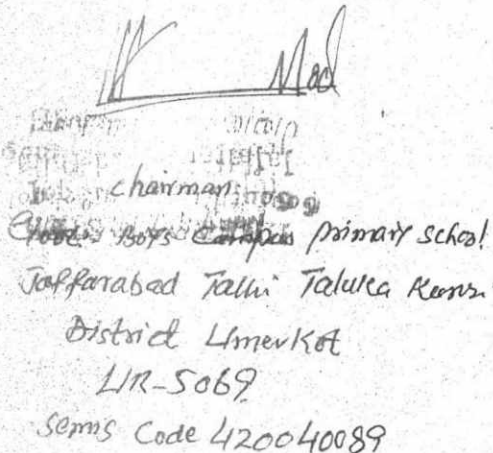 chairman
Govt: Boys Campus primary school
Jaffarabad Talhi Taluka Kunri
District Umerkot
UR-5069
Sems Code 420040089